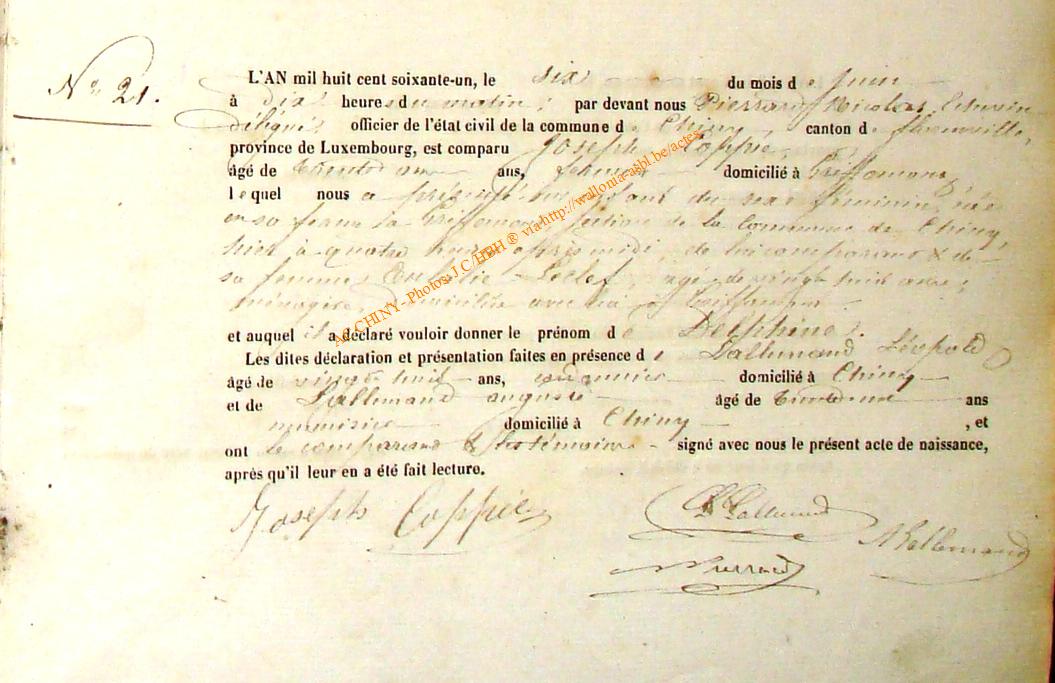 N° 21.
L'AN mil huit cent soixante-un, le six du mois de Juin
à dix heures du matin, par devant nous Pierrard Nicolas, Echevin
délégué officier de l'état civil de la commune de Chiny, canton de Florenville,
province de Luxembourg, est comparu Joseph Coppie,
âgé de trente ans, domicilié à
lequel nous a présenté un enfant du sexe féminin, née
en sa ferme section de la commune de Chiny,
hier à quatre heures après midi, de lui comparant & de
sa femme, Leclef, agé de vingt huit ans,
ménagère, domiciliée avec lui
et auquel il a déclaré vouloir donner le prénom de Delphine.
Les dites déclaration et présentation faites en présence de Lallemand Léopold
âgé de vingt huit ans, domicilié à Chiny
et de Lallemand auguste âgé de ans
domicilié à Chiny , et
ont le comparant & les témoins signé avec nous le présent acte de naissance,
après qu'il leur en a été fait lecture.
Joseph Coppie
Lallemand
A Lallemand
Pierrard
AC CHINY - Photos J.C/HBH ® via http://wallonia-asbl.be/actes